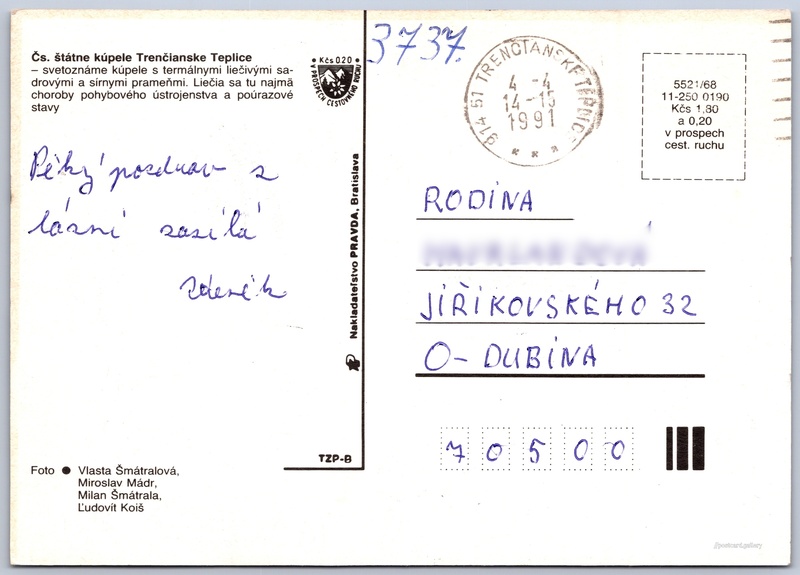 Čs. štátne kúpele Trenčianske Teplice
– svetoznáme kúpele s termálnymi liečivými sa-
drovými a sírnymi prameňmi. Liečia sa tu najmä
choroby pohybového ústrojenstva a poúrazové
stavy
Kčs 0.20
A PROSPECH CESTOVNÉHO RUCHU
3737.
914 51 TRENČIANSKE TEPLICE
4 -4
14-15
1991
* * *
5521/68
11-250 0190
Kčs 1,80
a 0,20
v prospech
cest. ruchu
Pěkný pozdrav z
lázní zasílá
Zdeněk
Nakladateľstvo PRAVDA, Bratislava
RODINA
JIŘÍKOVSKÉHO 32
O- DUBINA
70500
TZP-B
Foto ● Vlasta Šmátralová,
Miroslav Mádr,
Milan Šmátrala,
Ľudovít Koiš
//postcard.gallery